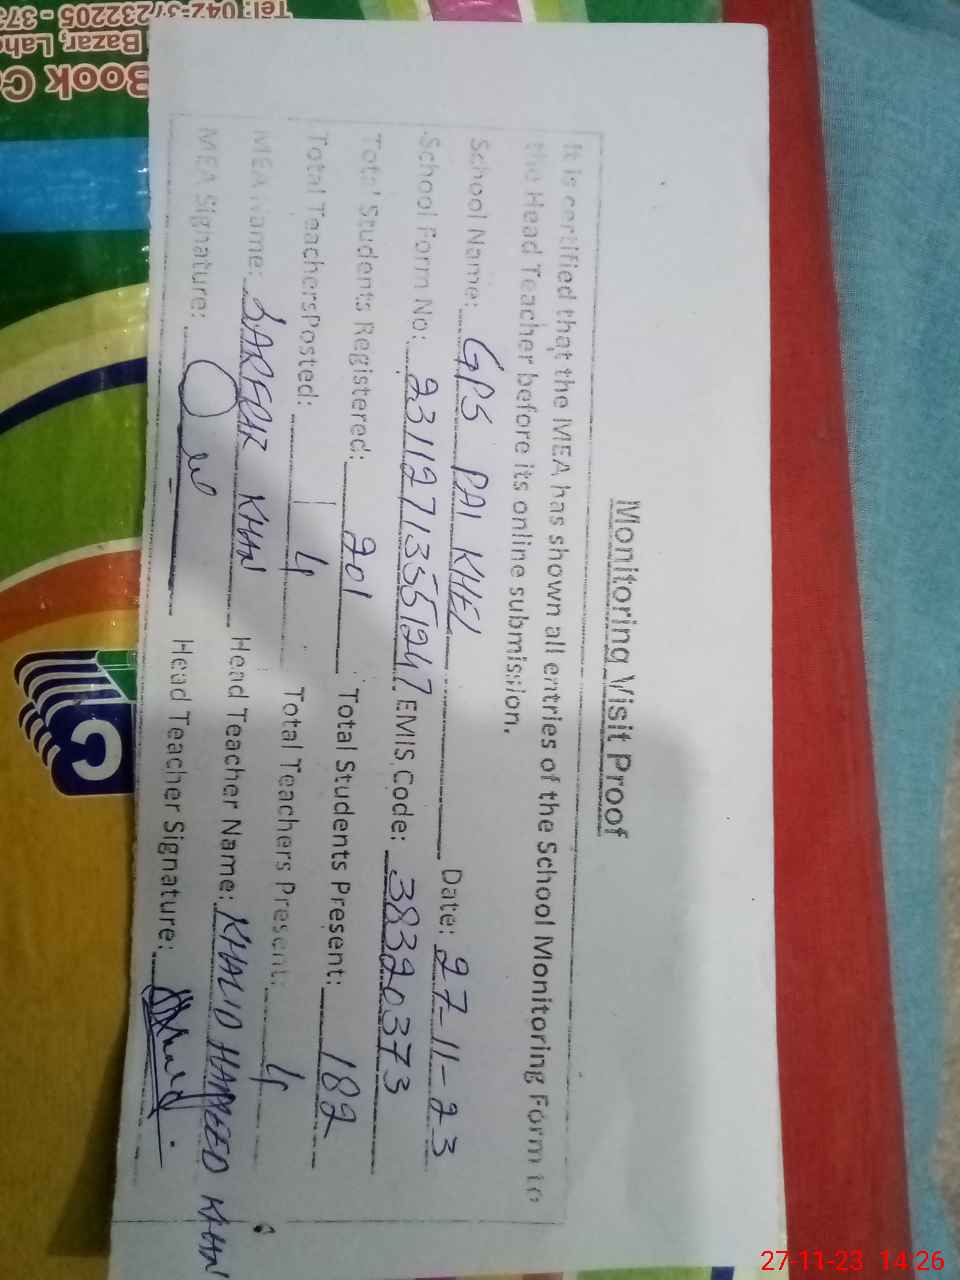 Monitoring Visit Proof
It is certified that the MEA has shown all entries of the School Monitoring Form to
the Head Teacher before its online submission.
School Name: GPS PAI KHEL Date: 27-11-23
School Form No: 23112713551247 EMIS Code: 38320373
Total Students Registered: 201 Total Students Present: 182
Total Teachers Posted: 4 Total Teachers Present: 4
MEA Name: SARFRAZ KHAN Head Teacher Name: KHALID HAMEED KHAN
MEA Signature: Head Teacher Signature:
Book C
Bazar, Lah
Tel: 042-37232205 - 373
27-11-23 14:26